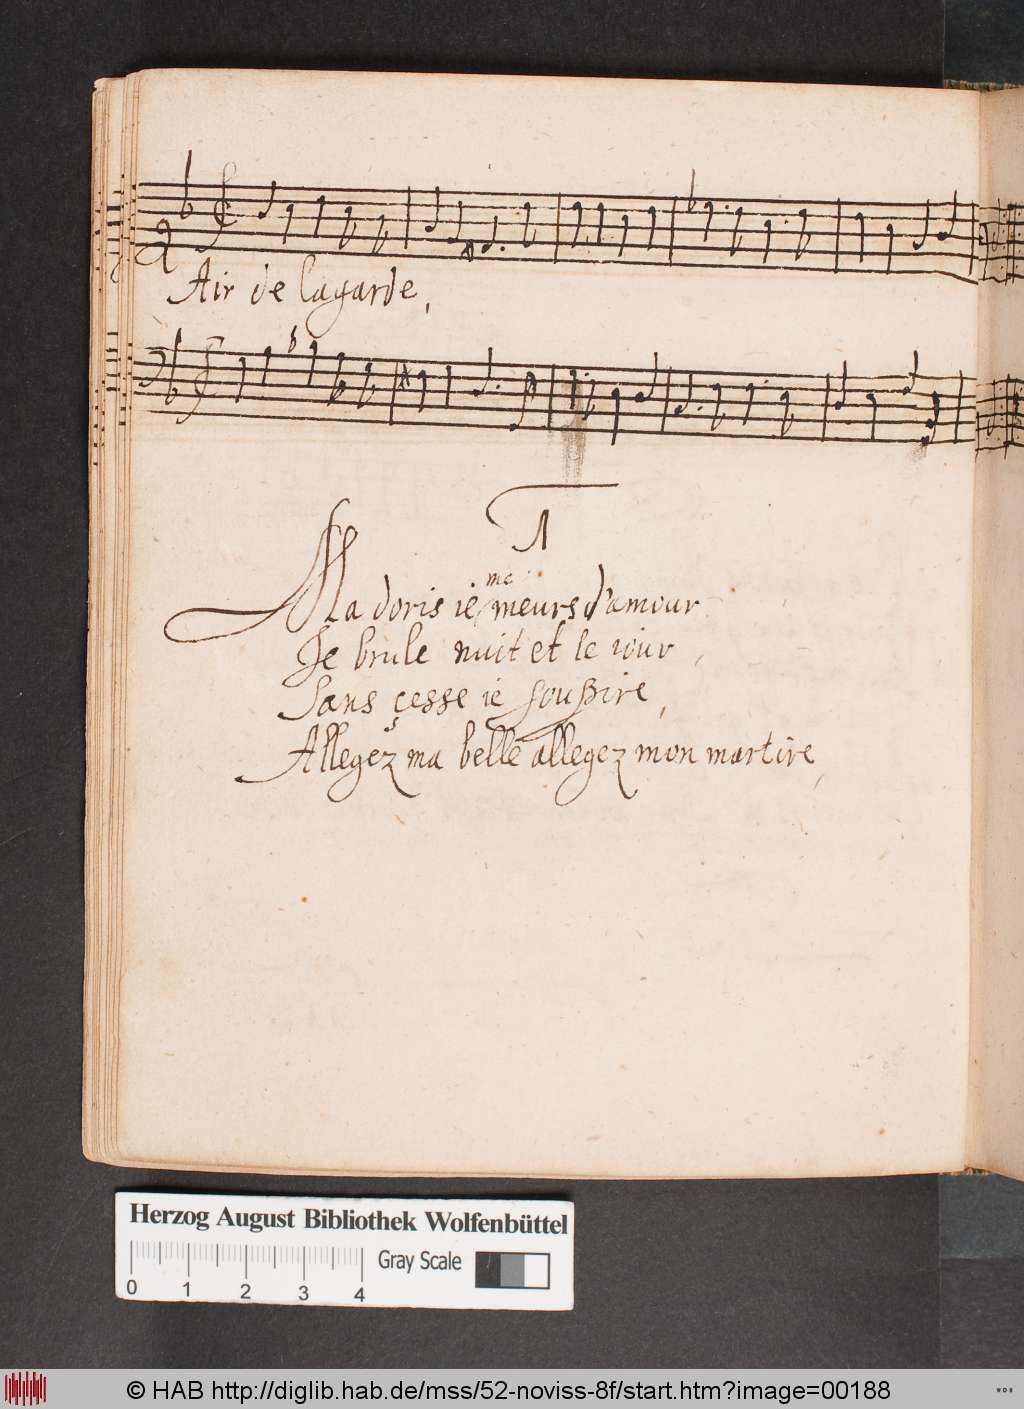 Air de lagarde,
1
Ma doris ie me meurs d'amour
Je brule nuit et le iour,
Sans çesse ie soußire,
Allegez ma belle allegez mon martire,
Herzog August Bibliothek Wolfenbüttel
Gray Scale
0 1 2 3 4
© HAB http://diglib.hab.de/mss/52-noviss-8f/start.htm?image=00188